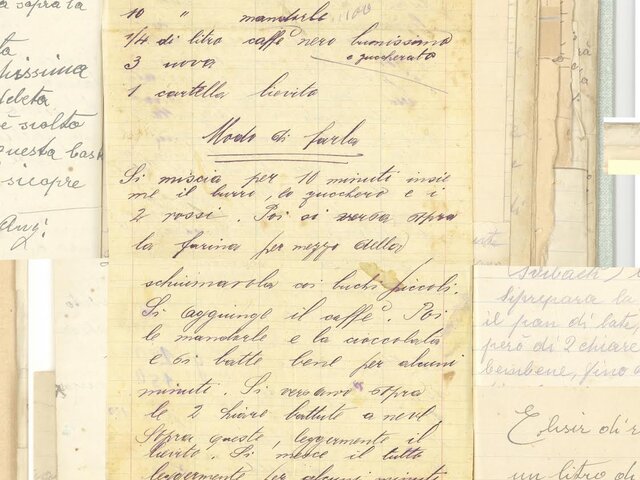 10 " mandorle 100
1/4 di litro caffè nero bonissimo
e zuccherato
3 uova
1 cartella lievito
Modo di farla
Si miscia per 10 minuti insie
me il burro, lo zucchero e i
2 rossi. Poi si versa sopra
la farina per mezzo della
schiumarola coi buchi piccoli.
Si aggiunge il caffè. Poi
le mandorle e la cioccolata
e si batte bene per alcuni
minuti. Si versano sopra
le 2 chiare battute a neve
Sopra queste, leggermente il
lievito. Si mesce il tutto
leggermente per alcuni minuti
sopra la
è sciolto
questa
sicopre
Siprepara la
il pan di
però di 2 chiare
bembene, fino a
Elisir di
un litro di